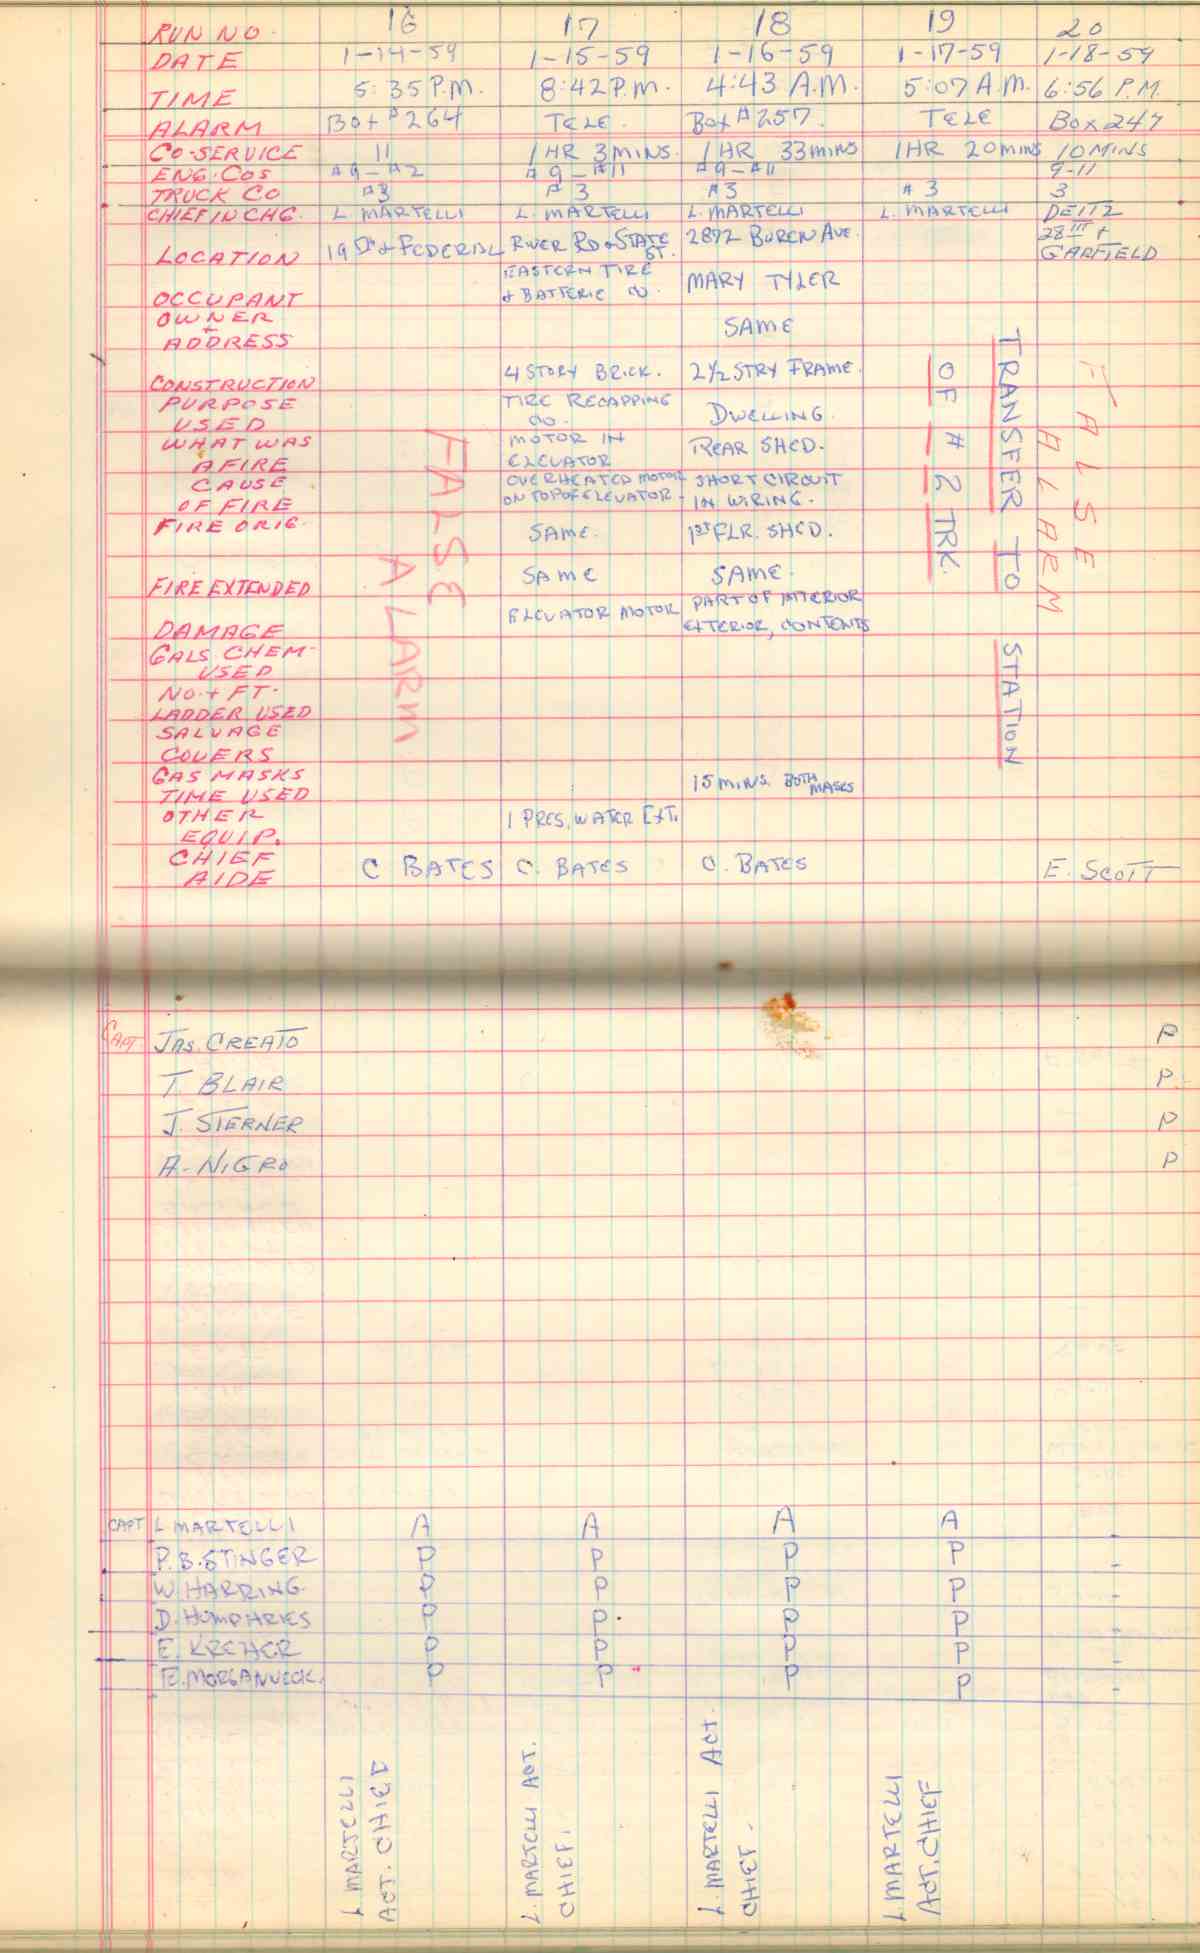 RUN NO. 16 17 18 19 20
DATE 1-14-59 1-15-59 1-16-59 1-17-59 1-18-59
TIME 5:35 P.M. 8:42 P.M. 4:43 A.M. 5:07 A.M. 6:56 P.M.
ALARM Box #264 TELE. Box #257. TELE Box 247
CO-SERVICE 11 1 HR 3 MINS. 1 HR 33 mins 1 HR 20 mins 10 MINS
ENG. COS #9-#2 #9-#11 #9-#11 9-11
TRUCK CO #3 #3 #3 #3 3
CHIEF IN CHG. L. MARTELLI L. MARTELLI L. MARTELLI L. MARTELLI DEITZ
LOCATION 19 St & FEDERAL RIVER RD & STATE ST. 2872 BUREN AVE. 28 & GARFIELD
OCCUPANT EASTERN TIRE & BATTERIE CO. MARY TYLER
OWNER & ADDRESS SAME
CONSTRUCTION 4 STORY BRICK. 2½ STRY FRAME.
PURPOSE USED TIRE RECAPPING CO. DWELLING.
WHAT WAS AFIRE MOTOR IN ELEVATOR REAR SHED.
CAUSE OF FIRE OVERHEATED MOTOR ON TOP OF ELEVATOR. SHORT CIRCUIT IN WIRING.
FIRE ORIG. SAME. 1ST FLR. SHED.
FIRE EXTENDED SAME SAME.
DAMAGE ELEVATOR MOTOR PART OF INTERIOR EXTERIOR, CONTENTS
GALS. CHEM- USED
NO. + FT. LADDER USED
SALVAGE COVERS
GAS MASKS TIME USED 15 MINS. BOTH MASKS
OTHER EQUIP. 1 PRES. WATER EXT.
CHIEF AIDE C BATES C. BATES C. BATES E. SCOTT
FALSE ALARM
TRANSFER TO STATION
OF #2 TRK.
FALSE
ALARM
CAPT. JAS. CREATO P
T. BLAIR P.
J. STERNER P
A. NIGRO P
CAPT L MARTELLI A A A A -
P.B. STINGER P P P P -
W. HARRING. P P P P -
D. HUMPHRIES P P. P P -
E. KREHER P P P P -
E. MORGANWECK. P P P P -
L. MARTELLI ACT. CHIEF
L. MARTELLI ACT. CHIEF.
L. MARTELLI ACT. CHIEF.
L. MARTELLI ACT. CHIEF